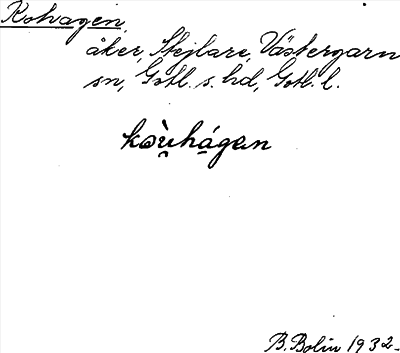 Kohagen,
åker, Stejlare, Västergarn
sn, Gotl. s. hd, Gotl. l.
kəù̯hágen
B. Bolin 1932.